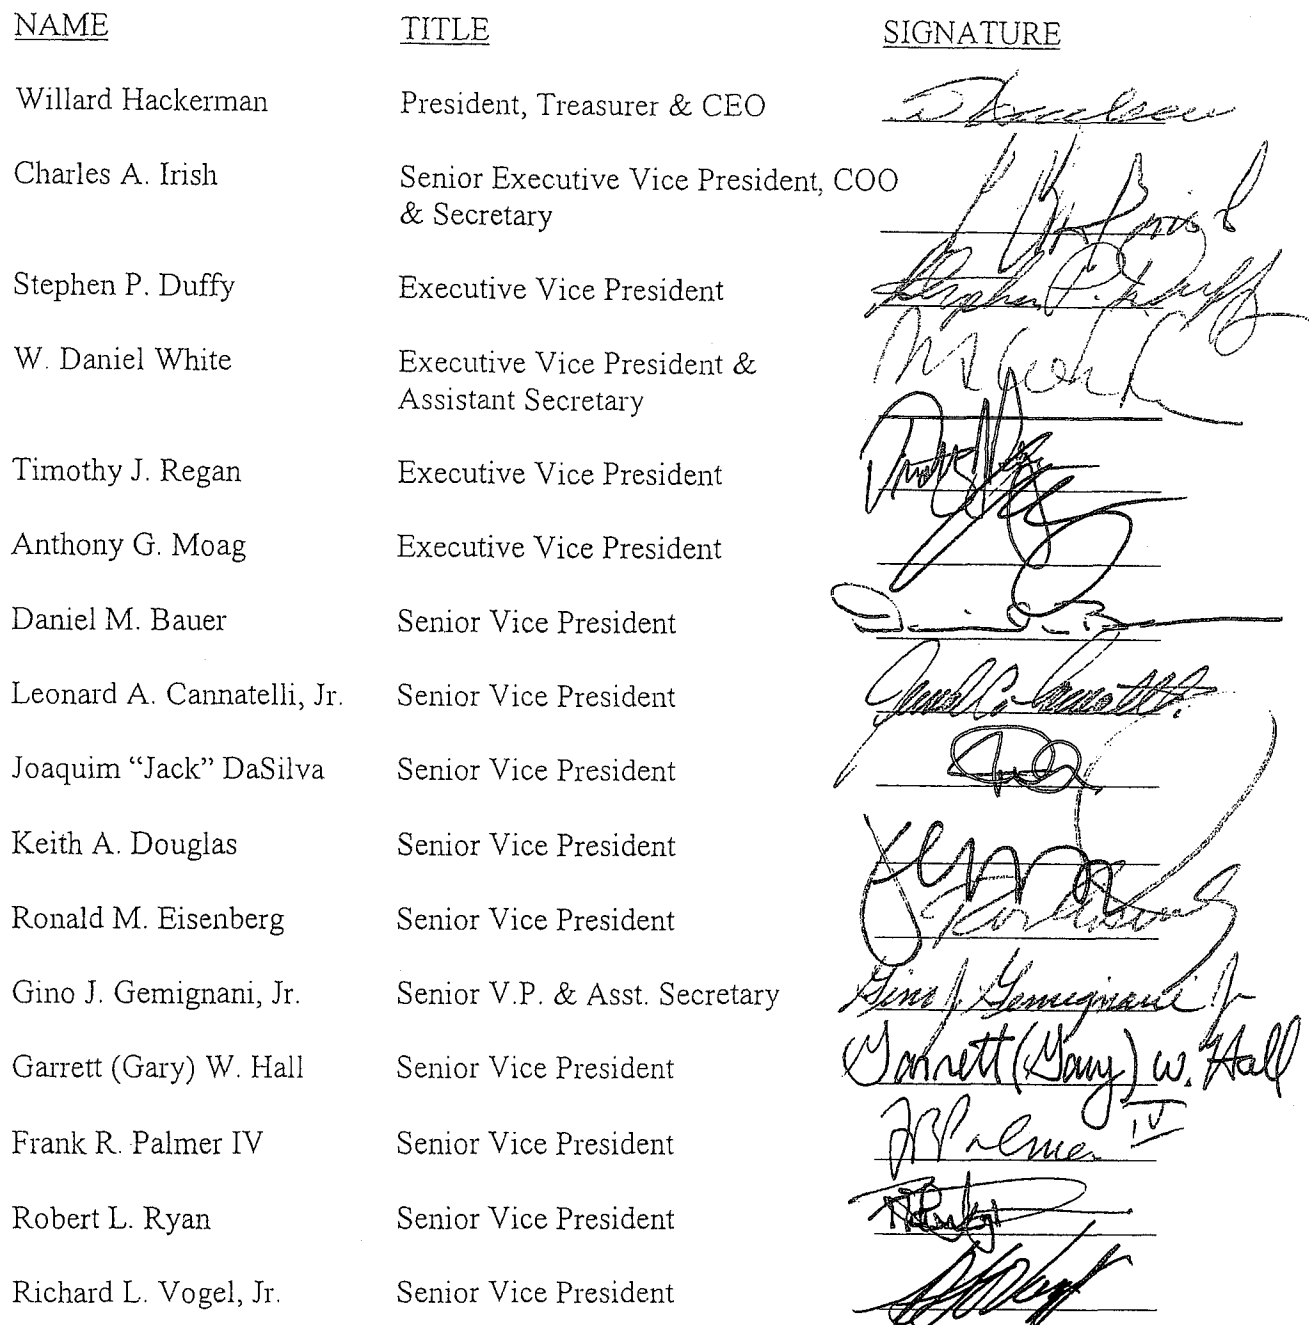 NAME TITLE SIGNATURE
Willard Hackerman President, Treasurer & CEO
Charles A. Irish Senior Executive Vice President, COO
& Secretary
Stephen P. Duffy Executive Vice President Stephen P. Duffy
W. Daniel White Executive Vice President &
Assistant Secretary
Timothy J. Regan Executive Vice President
Anthony G. Moag Executive Vice President
Daniel M. Bauer Senior Vice President
Leonard A. Cannatelli, Jr. Senior Vice President
Joaquim “Jack” DaSilva Senior Vice President
Keith A. Douglas Senior Vice President
Ronald M. Eisenberg Senior Vice President
Gino J. Gemignani, Jr. Senior V.P. & Asst. Secretary Gino J. Gemignani Jr
Garrett (Gary) W. Hall Senior Vice President Garrett (Gary) W. Hall
Frank R. Palmer IV Senior Vice President FRPalmer IV
Robert L. Ryan Senior Vice President
Richard L. Vogel, Jr. Senior Vice President